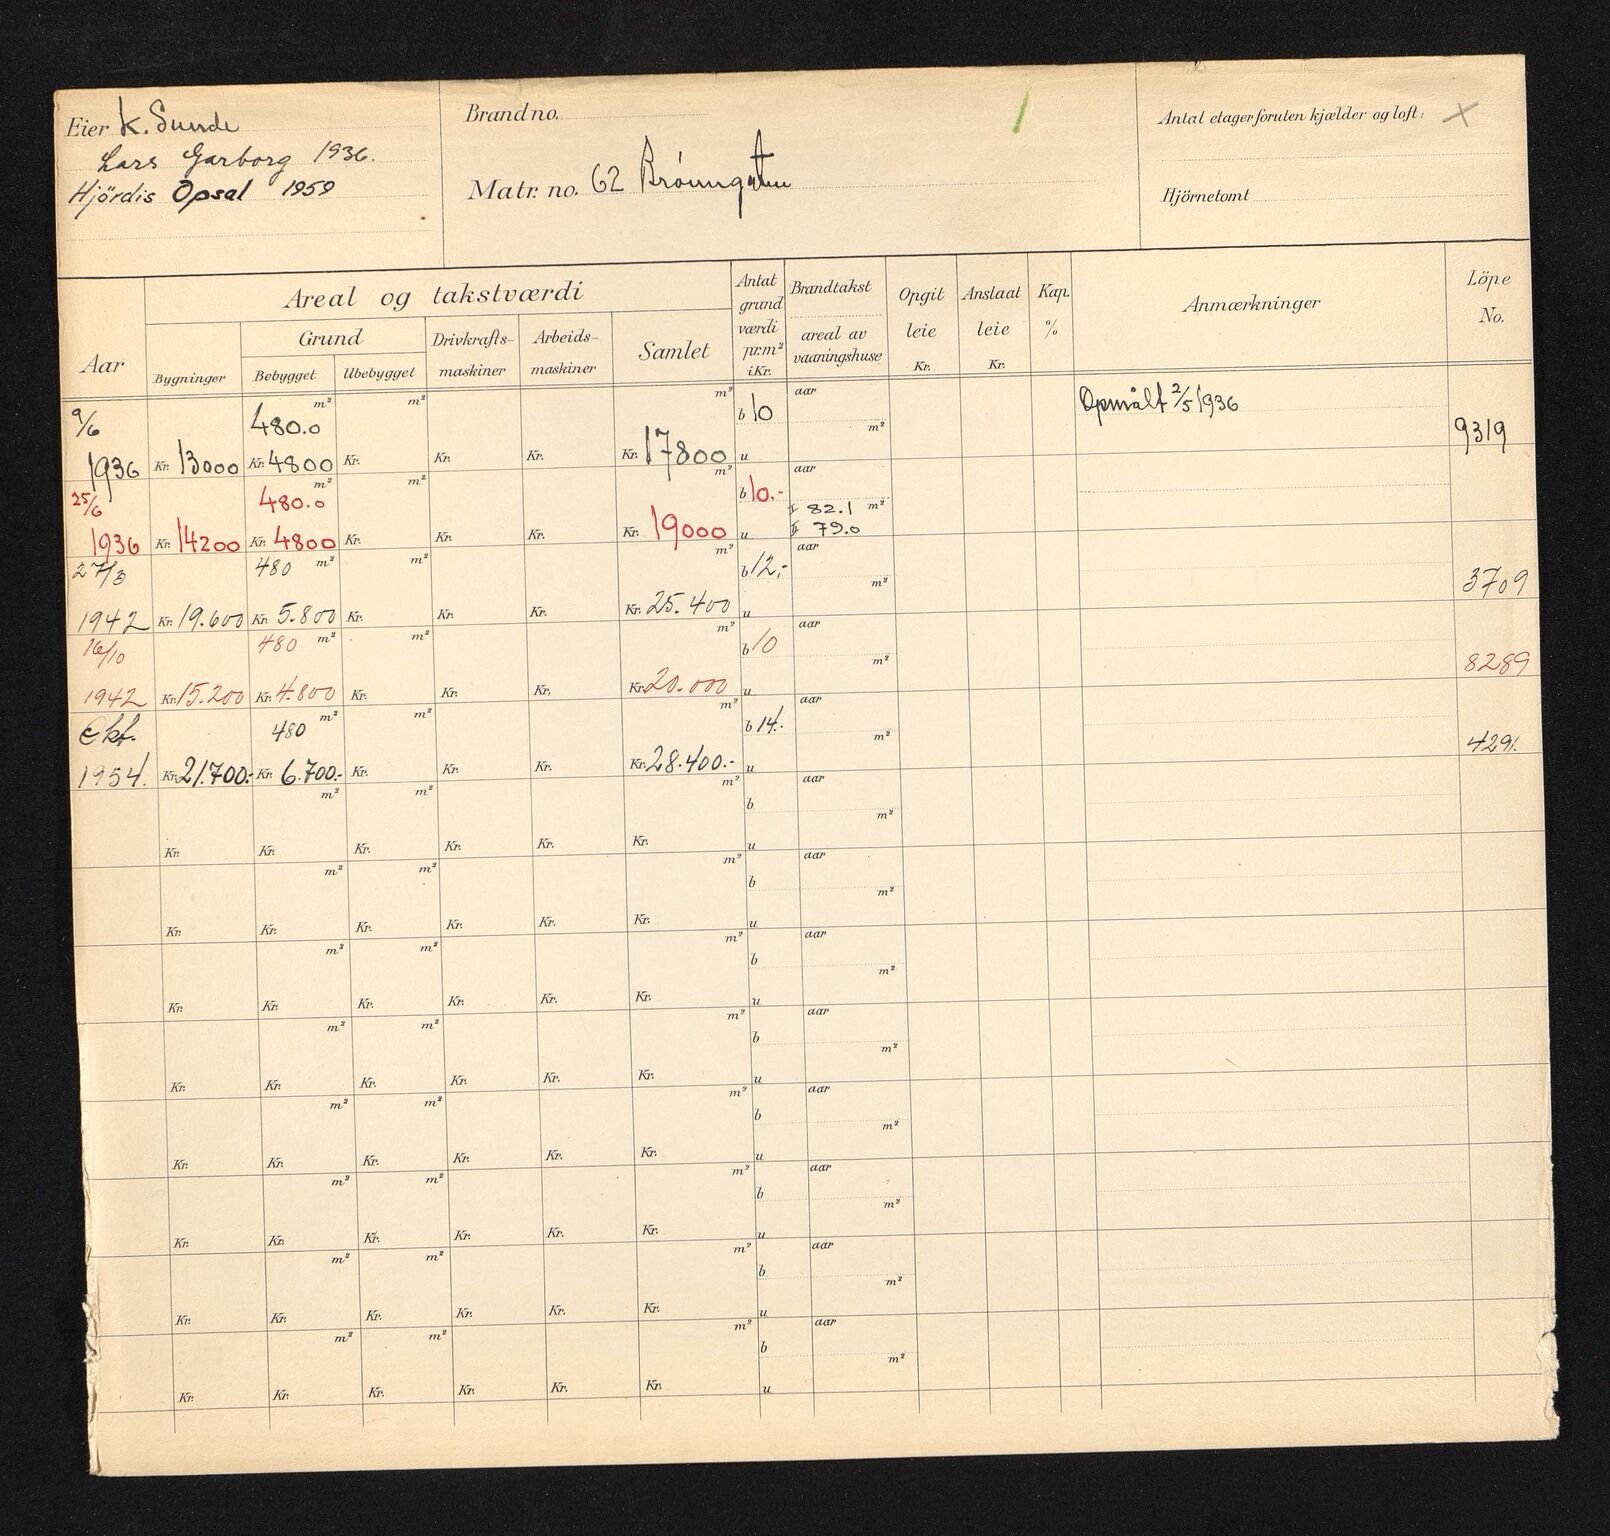 Eier K. Sunde
Lars Garborg 1936.
Hjördis Opsal 1959
Brand no.
Matr. no. 62
Antal etager foruten kjælder og loft: X
Hjörnetomt
Aar
Areal og takstværdi
Bygninger
Grund
Bebygget
Ubebygget
Drivkrafts-
maskiner
Arbeids-
maskiner
Samlet
Antal
grund
værdi
pr. m²
i Kr.
Brandtakst
areal av
vaaningshuse
Opgit
leie
Kr.
Anslaat
leie
Kr.
Kap.
%
Anmærkninger
Löpe
No.
9/6 480.0 m² m² m² b 10 aar m² Opmålt 2/5 1936
1936 Kr. 13000 Kr. 4800 Kr. Kr. Kr. Kr. 17800 u 9319
25/6 480.0 m² m² m² b 10.- aar 82.1 m²
1936 Kr. 14200 Kr. 4800 Kr. Kr. Kr. Kr. 19000 u 79.0
27/3 480 m² m² m² b 12,- aar m²
1942 Kr. 19.600 Kr. 5.800 Kr. Kr. Kr. Kr. 25.400 u 3709
16/10 480 m² m² m² b 10 aar m²
1942 Kr. 15.200 Kr. 4.800 Kr. Kr. Kr. Kr. 20.000 u 8289
480 m² m² m² b 14.- aar m²
1954. Kr. 21.700.- Kr. 6.700.- Kr. Kr. Kr. Kr. 28.400.- u 4291.
m² m² m² b aar m²
Kr. Kr. Kr. Kr. Kr. Kr. u
m² m² m² b aar m²
Kr. Kr. Kr. Kr. Kr. Kr. u
m² m² m² b aar m²
Kr. Kr. Kr. Kr. Kr. Kr. u
m² m² m² b aar m²
Kr. Kr. Kr. Kr. Kr. Kr. u
m² m² m² b aar m²
Kr. Kr. Kr. Kr. Kr. Kr. u
m² m² m² b aar m²
Kr. Kr. Kr. Kr. Kr. Kr. u
m² m² m² b aar m²
Kr. Kr. Kr. Kr. Kr. Kr. u
m² m² m² b aar m²
Kr. Kr. Kr. Kr. Kr. Kr. u